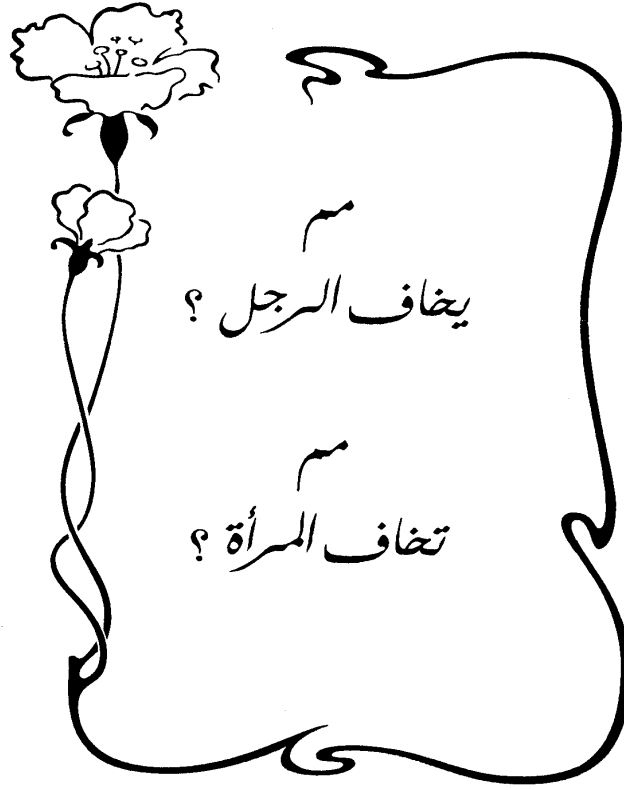 مم
يخاف الرجل ؟
مم
تخاف المرأة ؟